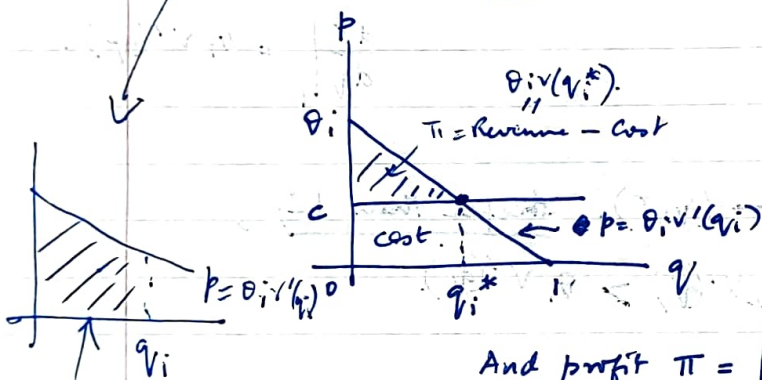 p
θᵢv(qᵢ*).
"
θᵢ
π = Revenue - Cost
c
cost.
p = θᵢv'(qᵢ)
p = θᵢv'(qᵢ)
0
qᵢ*
1
q
qᵢ
And profit π =